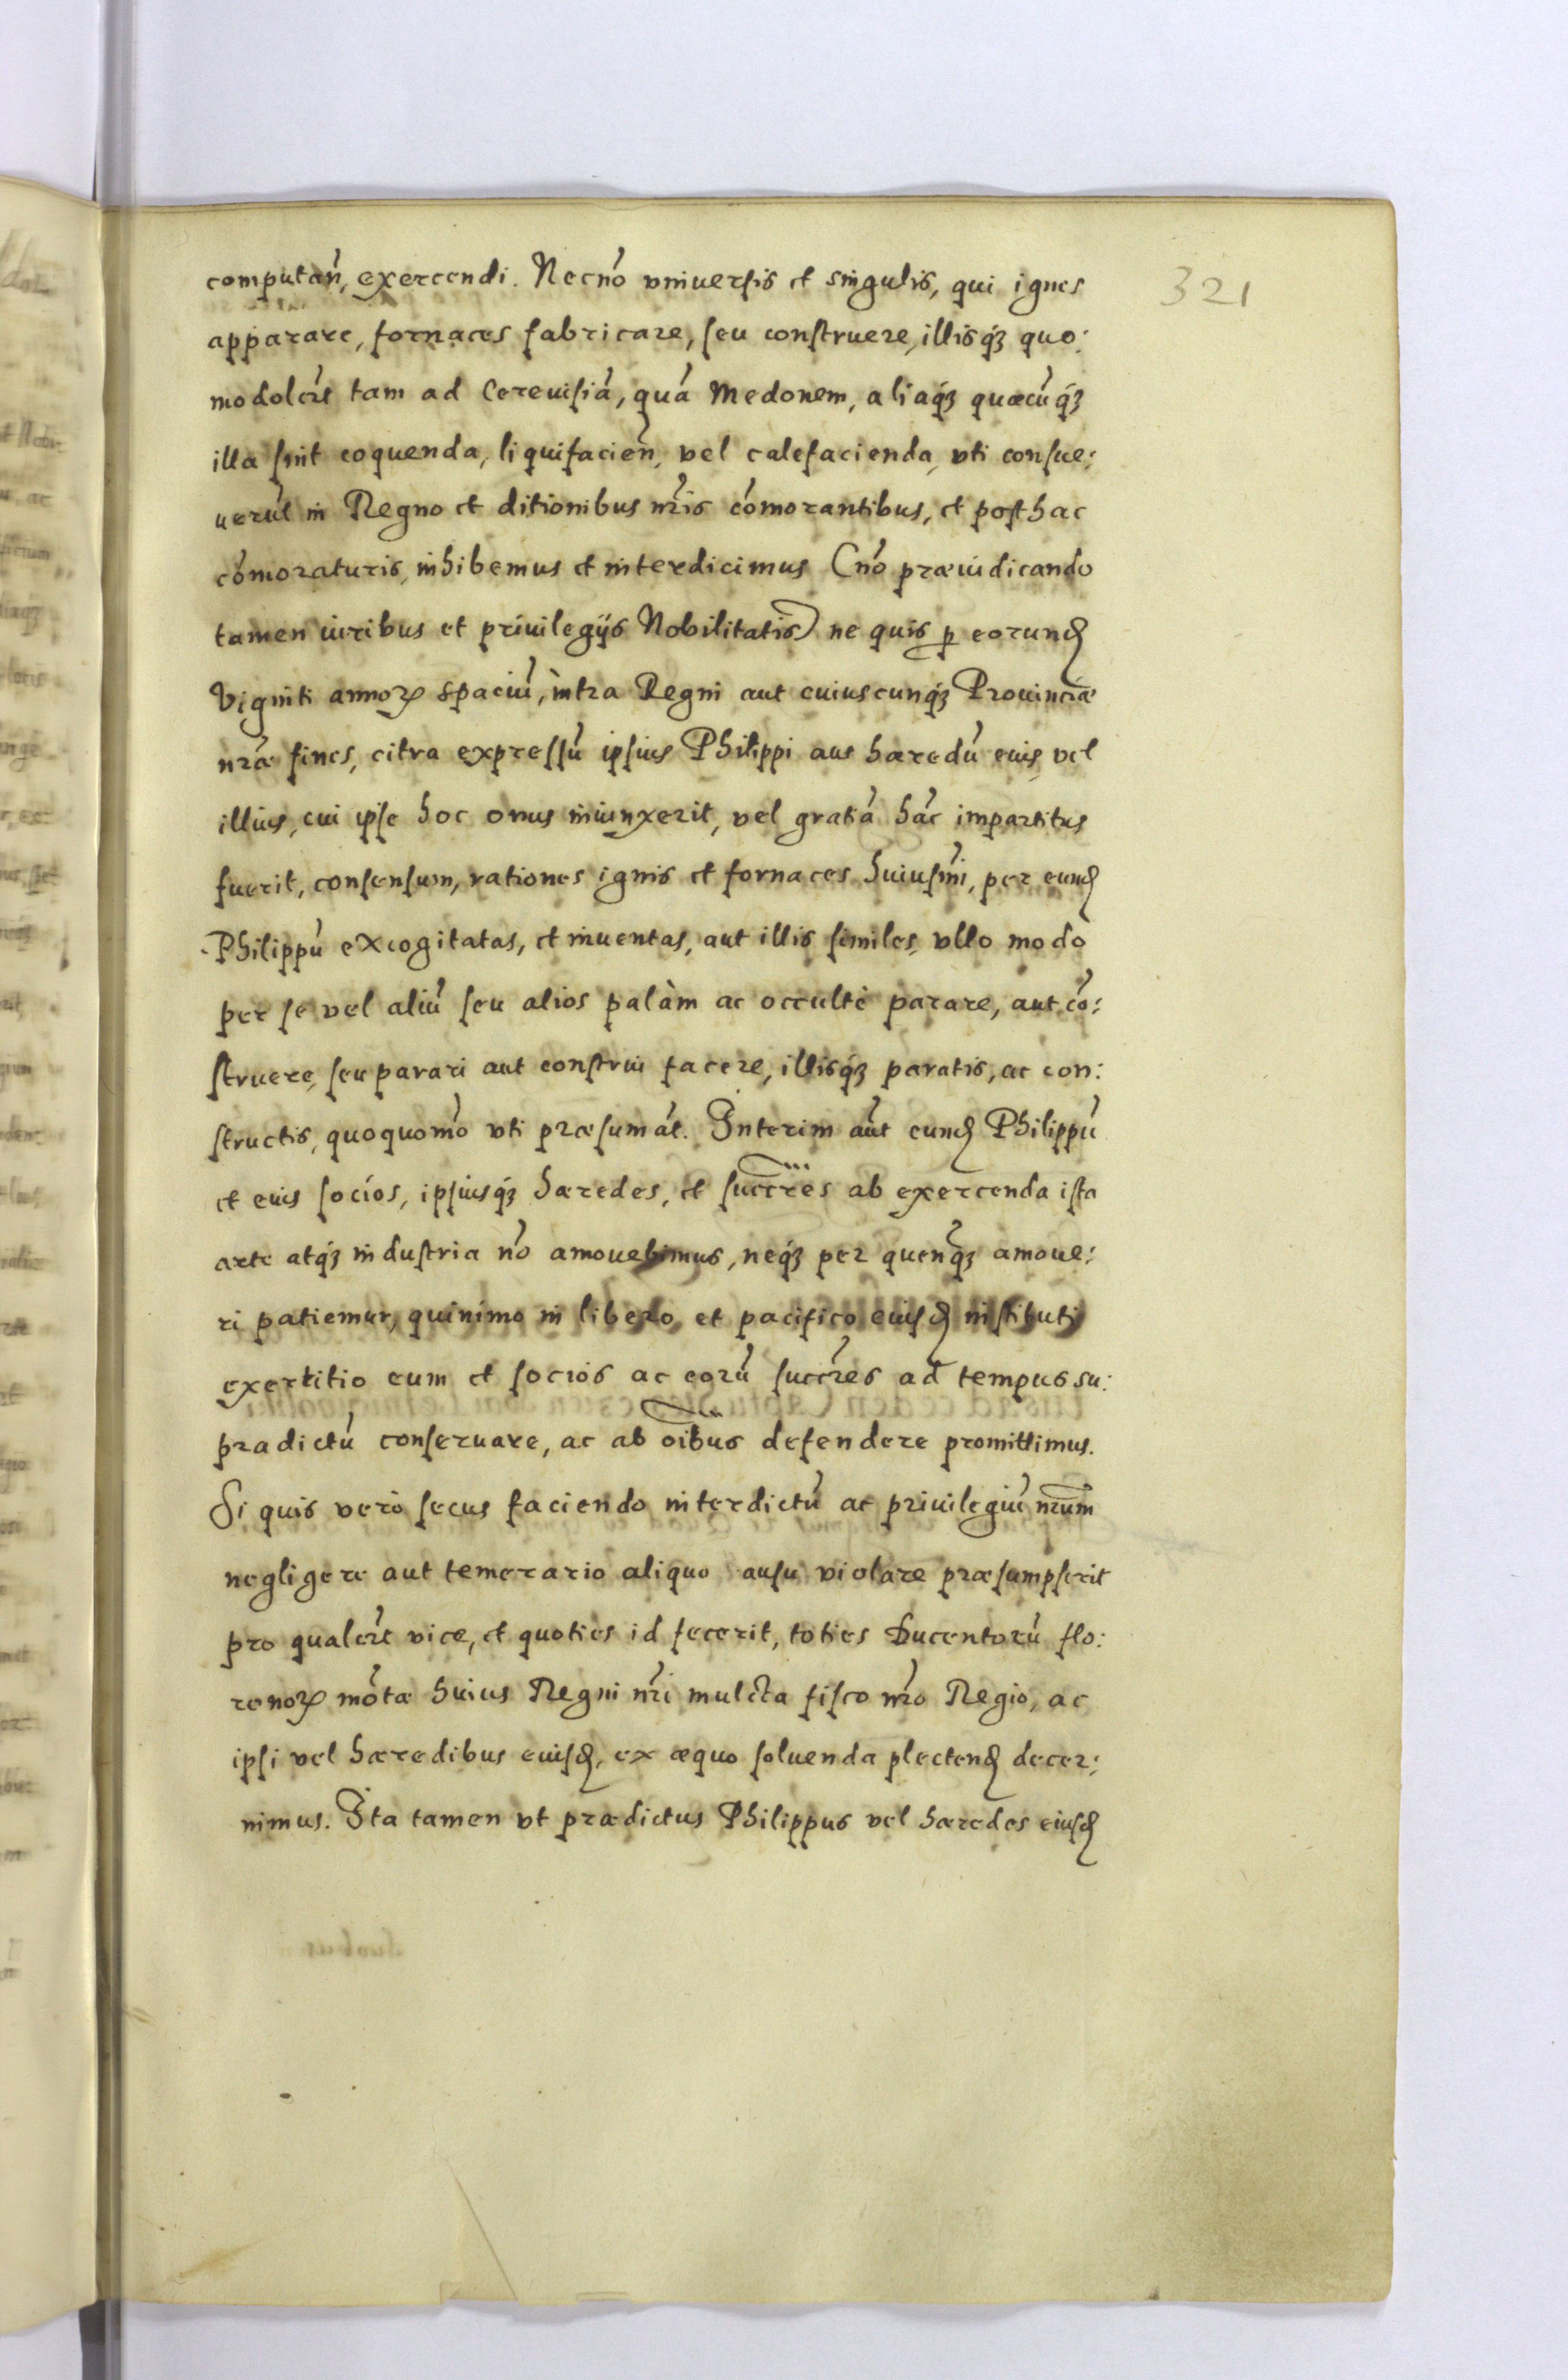 computan̄, exercendi. Necnō vniuersis et singulis, qui ignes
321
apparare, fornaces fabricare, seu construere, illisq́ꝫ quo:
modolcr̄t tam ad Cereuisiā, quā Medonem, aliaq́ꝫ quæcūq́ꝫ
illa sint coquenda, liquifacien̄, vel calefacienda, vti consue:
uerūt in Regno et ditionibus nr̄is cōmorantibus, et posthac
cōmoraturis, inhibemus et interdicimus (nō præiudicando
tamen iuribus et priuilegijs Nobilitatis) ne quis ꝑ eorund̄
viginti annoꝝ spaciū, intra Regni aut cuiuscunq́ꝫ Prouinciæ
nr̄æ fines, citra expressū ipsius Philippi aut hæredū eius, vel
illius, cui ipse hoc onus iniunxerit, vel gratiā hāc impartitus
fuerit, consensum, rationes ignis et fornaces huiusm̄i, per eund̄
Philippū excogitatas, et inuentas, aut illis similes, vllo modo
per se vel aliū seu alios palàm ac occultè parare, aut cō:
struere, seu parari aut construi facere, illisq́ꝫ paratis, ac con:
structis, quoquomō vti præsumāt. Interim aūt eund̄ Philippū
et eius socios, ipsiusq́ꝫ hæredes, et succr̄es ab exercenda ista
arte atq́ꝫ industria nō amouebimus, neq́ꝫ per quenq̄ꝫ amoue:
ri patiemur, quinimo in libero et pacifico eiusd̄ instituti
exertitio eum et socios ac eorū succr̄es ad tempus su:
pradictū conseruare, ac ab oībus defendere promittimus.
Si quis verò secus faciendo interdictū ac priuilegiū nr̄um
negligere aut temerario aliquo ausu violare præsumpserit
pro qualcr̄t vice, et quoties id fecerit, toties Ducentorū flo:
renoꝝ mōtæ huius Regni nr̄i mulcta fisco nr̄o Regio, ac
ipsi vel hæredibus eiusd̄, ex æquo soluenda plectend̄ decer:
nimus. Ita tamen vt prædictus Philippus vel hæredes eiusd̄